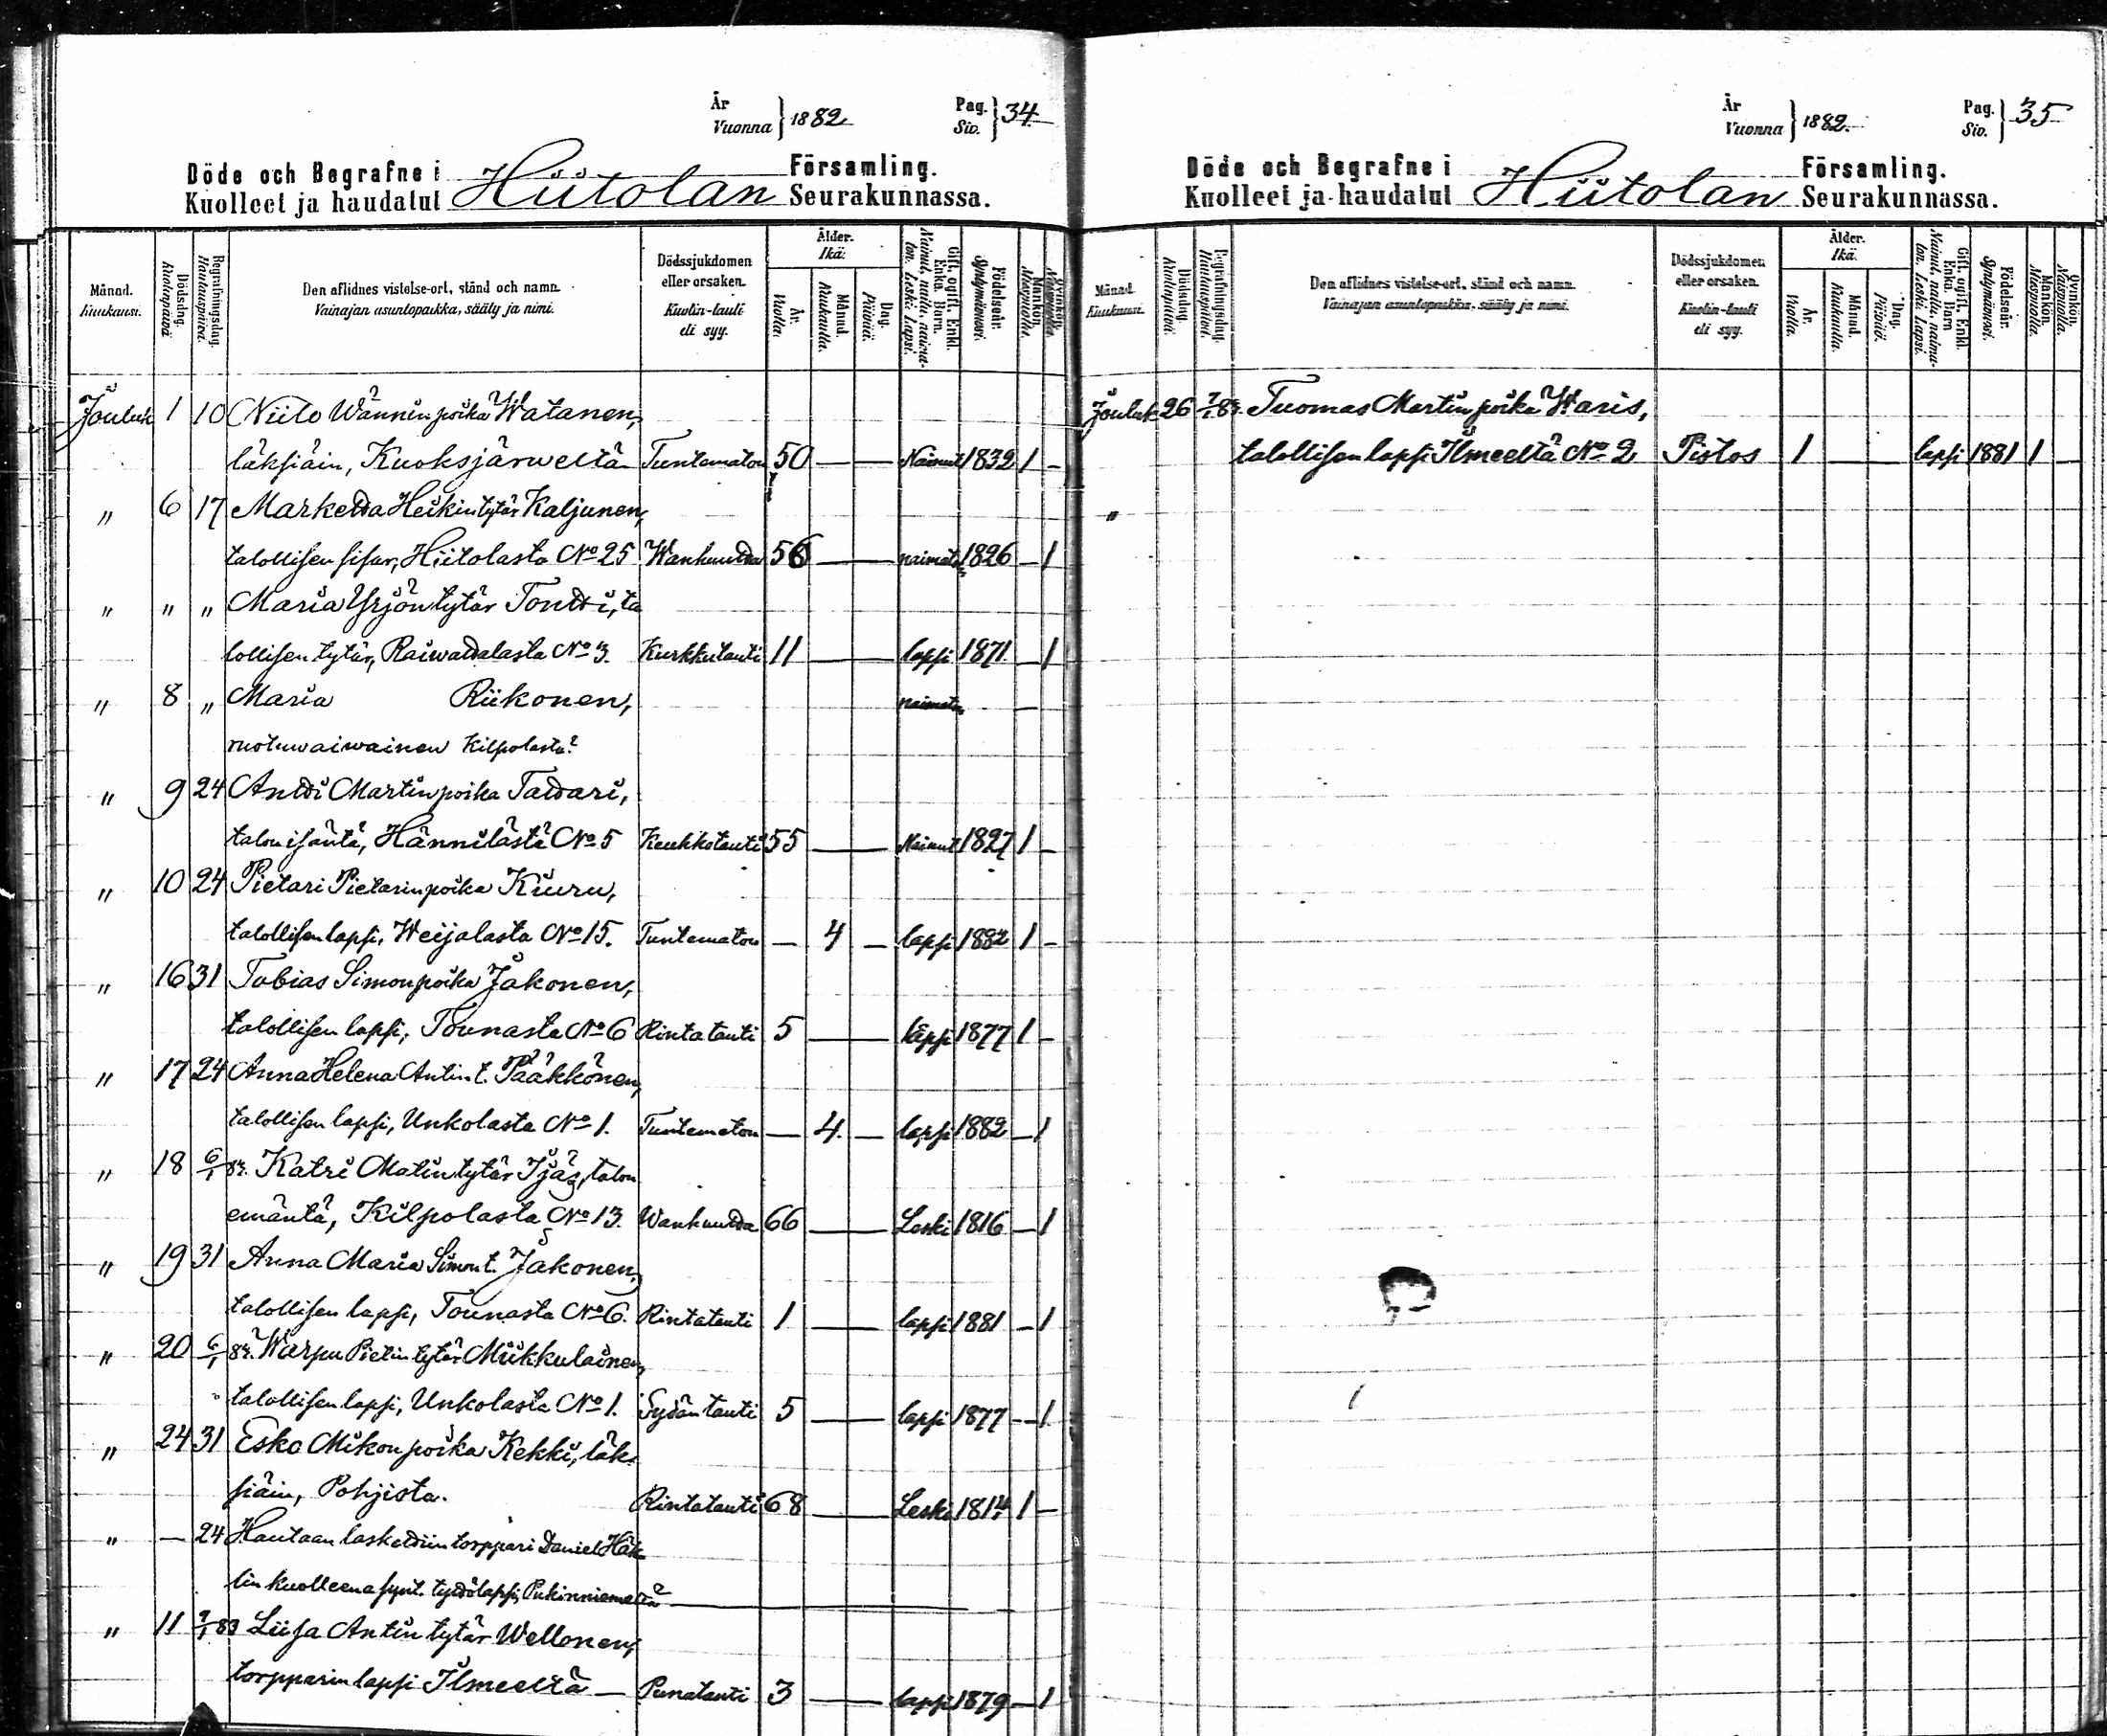 År
Vuonna } 1882
Pag.
Siv. } 34
Döde och Begrafne i Hiitolan Församling.
Kuolleet ja haudatut Seurakunnassa.
Månad. Kuukausi.
Dödsdag. Kuolinpäivä.
Begrafningsdag. Hautauspäivä.
Den aflidnes vistelse-ort, stånd och namn.
Vainajan asuntopaikka, sääty ja nimi.
Dödssjukdomen eller orsaken.
Kuolin-tauti eli syy.
Ålder. Ikä.
År. Vuotta.
Månad. Kuukautta.
Dag. Päivää.
Gift, ogift, Enkl. Enka. Barn.
Nainut, naitu, naimaton. Leski. Lapsi.
Födelseår. Syntymävuosi.
Mankön. Miespuolta.
Qvinkön. Naispuolta.
Jouluk 1 10 Niilo Wännin poika Watanen,
läksiäin, Kuoksjärweltä Tuntematon 50 — — Nainut 1832 1 –
" 6 17 Marketta Heikin tytär Kaljunen,
talollisen sisar, Hiitolasta No 25 Wanhuutta 56 — naimaton 1826 – 1
" " " Maria Yrjön tytär Tontti, ta
lollisen tytär, Raiwattalasta No 3. Kurkkutauti 11 — lapsi 1871 – 1
" 8 " Maria Riikonen, naimaton —
ruotuwaiwainen Kilpolasta?
" 9 24 Antti Martin poika Tattari,
talon isäntä, Hännilästä No 5 Keuhkotauti 55 — Nainut 1827 1 –
" 10 24 Pietari Pietarin poika Kiuru,
talollisen lapsi, Weijalasta No 15. Tuntematon — 4 – lapsi 1882 1 –
" 16 31 Tobias Simon poika Jakonen,
talollisen lapsi, Tounasta No 6 Rintatauti 5 — lapsi 1877 1 –
" 17 24 Anna Helena Antin t. Pääkkönen,
talollisen lapsi, Unkolasta No 1. Tuntematon — 4. — lapsi 1882 – 1
" 18 6/1 83. Katri Matin tytär Ijäs, talon
emäntä, Kilpolasta No 13. Wanhuutta 66 — Leski 1816 – 1
" 19 31 Anna Maria Simon t. Jakonen,
talollisen lapsi, Tounasta No 6. Rintatauti 1 — lapsi 1881 – 1
" 20 6/1 83. Warpu Pietin tytär Miikkulainen,
talollisen lapsi, Unkolasta No 1. Sydän tauti 5 — lapsi 1877 – 1
" 24 31 Esko Mikon poika Kekki, läk-
siäin, Pohjista. Rintatauti 68 — Leski 1814 1 –
" — 24 Hautaan laskettiin torppari Daniel Häk
lin kuolleena synt. tyttölapsi, Pukinniemeltä
" 11 7/1 83 Liisa Antin tytär Wellonen,
torpparin lapsi Ilmeeltä — Punatauti 3 — lapsi 1879 – 1
År
Vuonna } 1882.
Pag.
Siv. } 35
Döde och Begrafne i Hiitolan Församling.
Kuolleet ja haudatut Seurakunnassa.
Månad. Kuukausi.
Dödsdag. Kuolinpäivä.
Begrafningsdag. Hautauspäivä.
Den aflidnes vistelse-ort, stånd och namn.
Vainajan asuntopaikka, sääty ja nimi.
Dödssjukdomen eller orsaken.
Kuolin-tauti eli syy.
Ålder. Ikä.
År. Vuotta.
Månad. Kuukautta.
Dag. Päivää.
Gift, ogift, Enkl. Enka. Barn
Nainut, naitu, naimaton. Leski. Lapsi.
Födelseår. Syntymävuosi.
Mankön. Miespuolta.
Qvinkön. Naispuolta.
Jouluk 26 7/1 83. Tuomas Martin poika Waris,
talollisen lapsi Ilmeeltä No 2 Pistos 1 — lapsi 1881 1 –
"